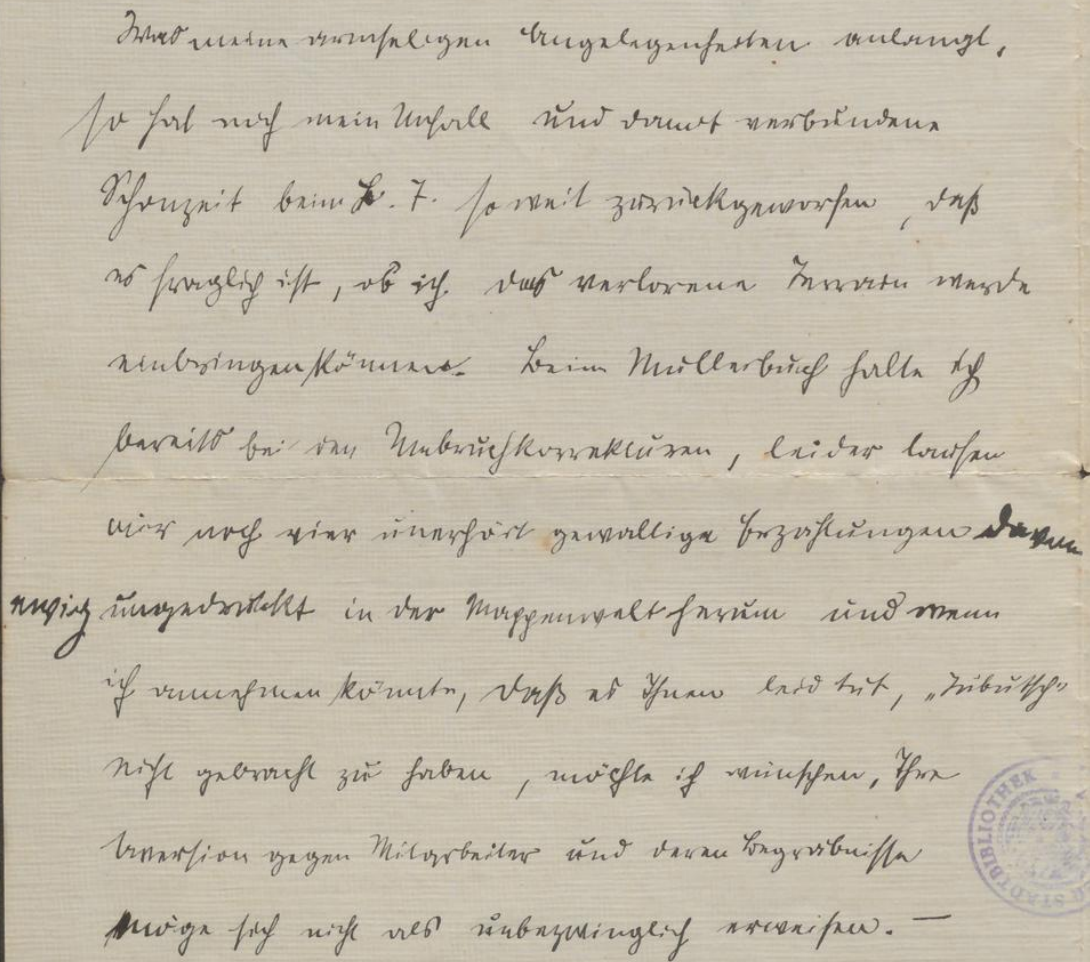 Was meine armseligen Angelegenheiten anlangt,
so hat mich mein Unfall und damit verbundene
Schonzeit beim B. T. so weit zurückgeworfen, daß
es fraglich ist, ob ich das verlorene Terrain werde
einbringen können. Beim Müllerbuch halte ich
bereits bei den Umbruchkorrekturen, leider laufen
mir noch vier unerhört gewaltige Erzählungen davon
ewig ungedruckt in der Mappenwelt herum und wenn
ich annehmen könnte, daß es Ihnen leid tut, „Tubutsch“
nicht gebracht zu haben, möchte ich wünschen, Ihre
Aversion gegen Mitarbeiter und deren Begräbnisse
möge sich nicht als unbezwinglich erweisen. —
STADTBIBLIOTHEK